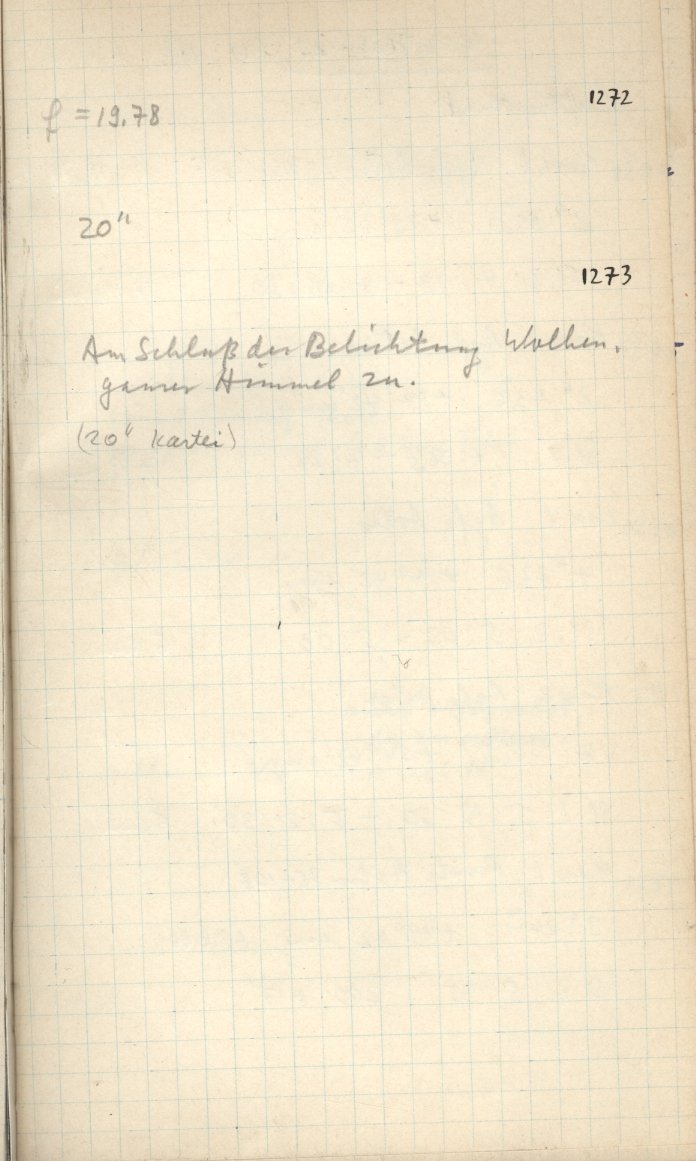 1272
f = 19.78
20"
1273
Am Schluß der Belichtung Wolken.
ganzer Himmel zu.
(20" Kartei)